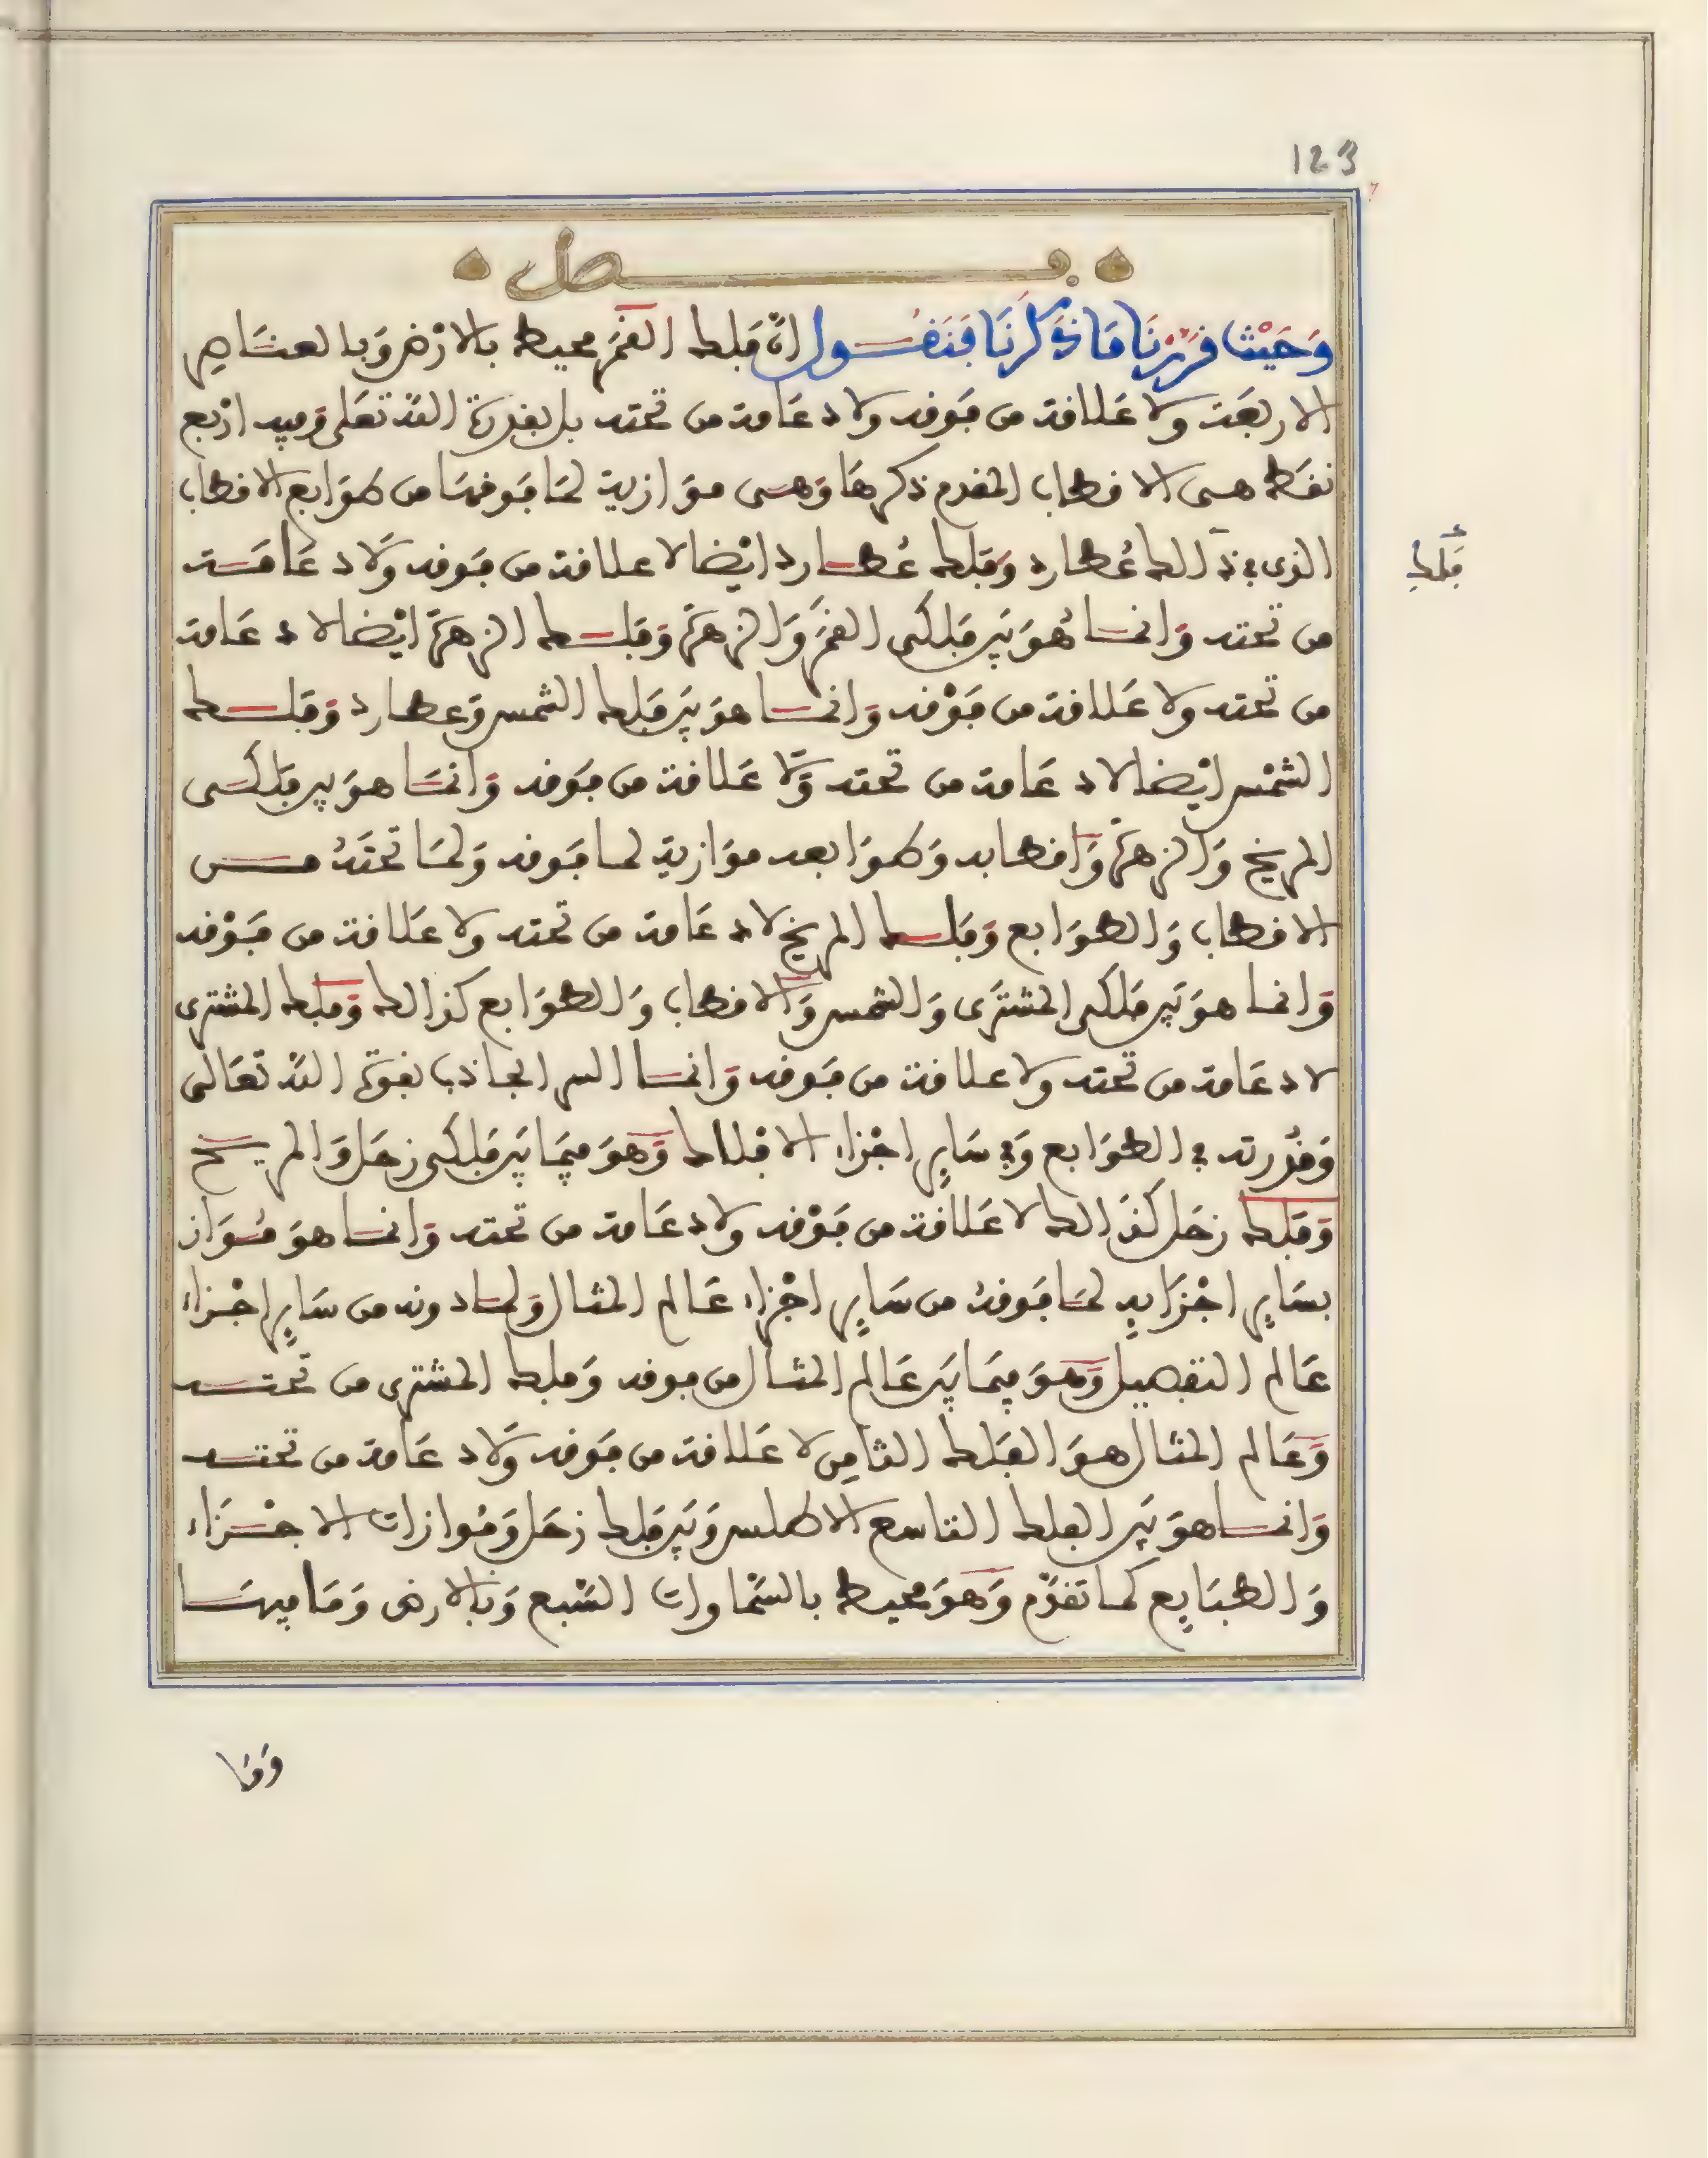 123
فصل
وَحَيْث قررْنَا مَا ذَكرنَا فَنَقُـول انّ فَلك القمَر محيط بالارْض وَبالعنَاصِر
الاربعَة ولا عَلاقة من فَوقه ولا دعَامة من تحته بل بقدرة الله تعَلى وفيه ارْبع
نقَط هــى الاقطاب المقدم ذكرهَا وَهــى موَازية لمَا فَوقهَا من طوَابع الاقطاب
الذى فى ذَالك عُطارد وَفَلك عُطـارد ايْضا لا علاقة من فَوقه وَلا دعَامَــة
من تحته وَانمـا هُوَ بَين فَلكى القمَر وَالزهرَة وَفَلـك الزهرَة ايْضا لا دعَامة
من تحته ولا عَلاقة من فَوْقه وَانمـا هوَ بَين فَلك الشمس وَعطارد وَفَلـك
الشمْس ايْضا لا دعَامة من تحته وَلَا عَلاقة من فَوقه وَانمَـا هوَ بين فَلكـى
المريخ وَالزهرَة وَاقطابه وَطوَابعه موَازية لمـا فَوقه وَلمَا تحتَهُ مــن
الاقطاب وَالطوَابع وَفَلـك المريخ لا دعَامة من تحته ولا عَلاقة من فَوْقه
وَانمـا هوَ بَين فلكى المشترَى وَالشمس وَالاقطاب وَالطوَابع كذالك وَفلك المشترى
لا دعَامة من تحته ولا علاقة من فَوقه وَانمـا السر الجاذب بقوة الله تعَالى
وَقُدرته فى الطوَابع وَفى سَايِر اجْزاء الافْلاك وَهوَ فيمَا بَين فَلكى زحَل وَالمريـخ
وَفَلك زحَل كَذَالك لا عَلاقة من فَوْقه ولا دعَامة من تحته وَانمـا هوَ مُـوَاز
بسَايِر اجْزَايهِ لمَا فَوقهُ من سَايِر اجْزاء عَالم المثال وَلمـا دونه من سَايِر اجْـزاء
عَالم التفصيل وَهوَ فيمَا بَين عَالم المثال من فوقه وَفلك المشترى من تحتــه
وَعَالم المثال هوَ الفَلك الثامِن لا عَلاقة من فَوقه وَلا دعَامة من تحتــه
وَانمـا هوَ بَين الفلك التاسع الاطلس وَبَين فَلك زحَل وَمُوازات الاجْـزَاء
وَالطبَايع كمَا تقدّم وَهوَ محيط بالسّمَاوات السّبع وَبالارض وَمَا فيهـا
فَلكِ
وَمَا